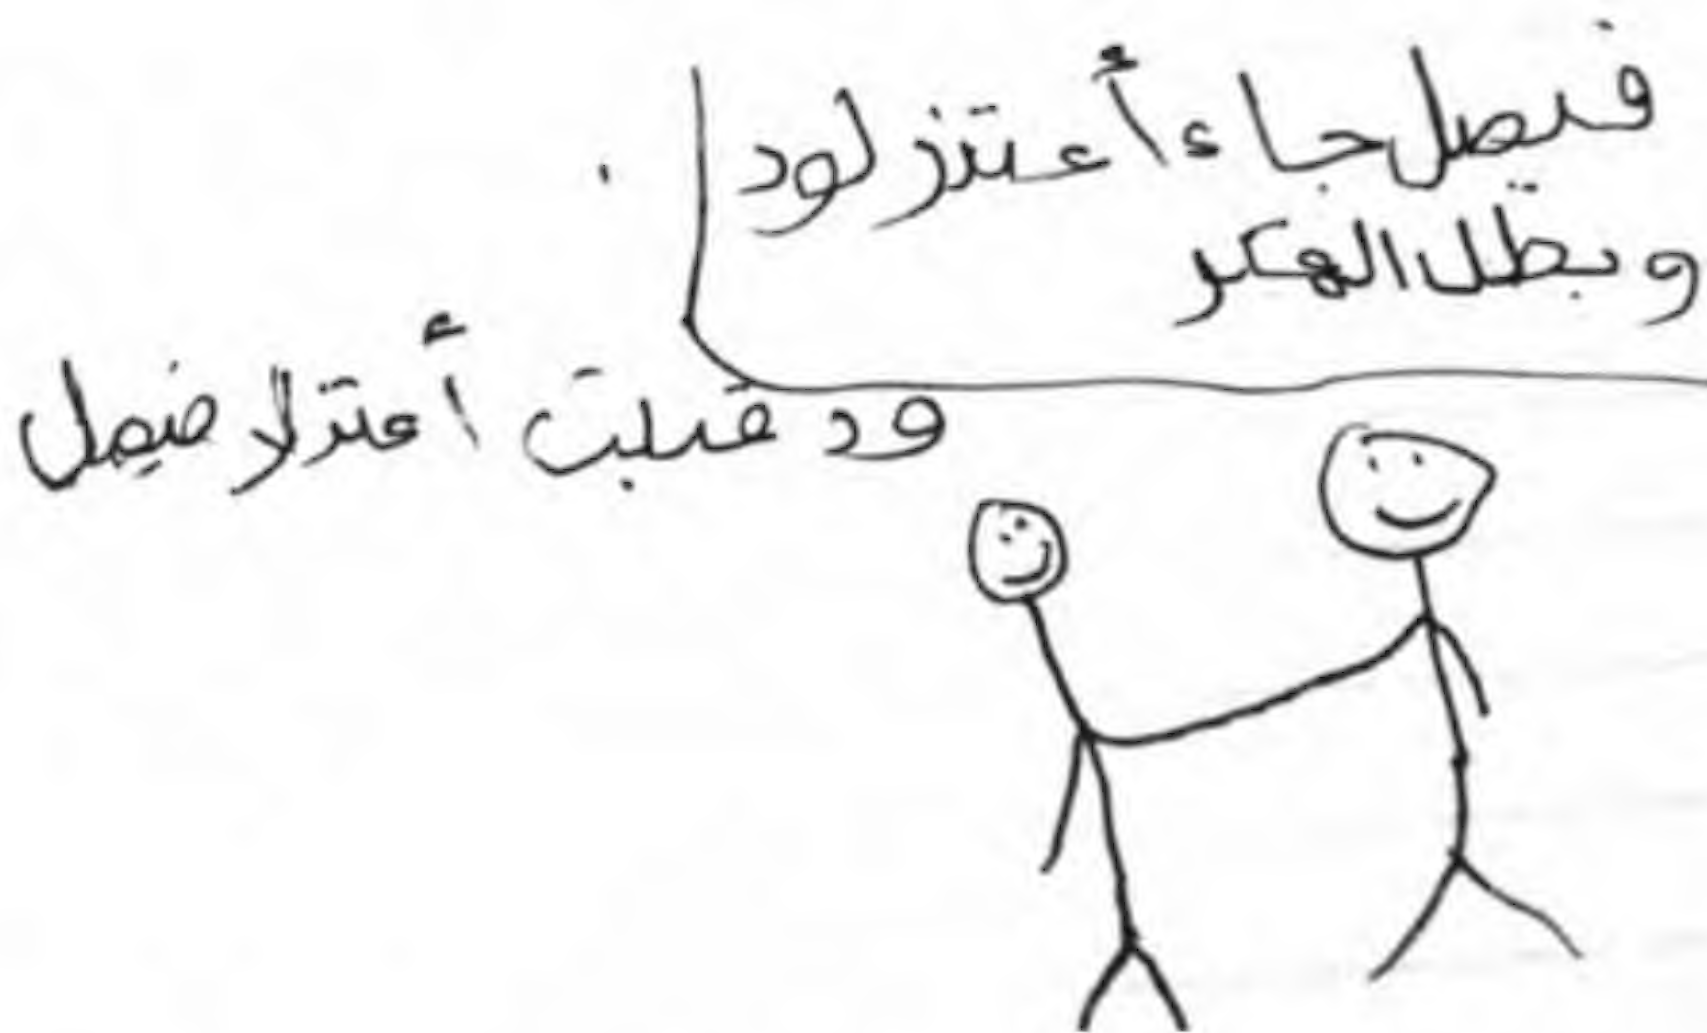 فيصل جاء أعتذر لود
وبطل الهكر
ود قبلت أعتذر فيصل